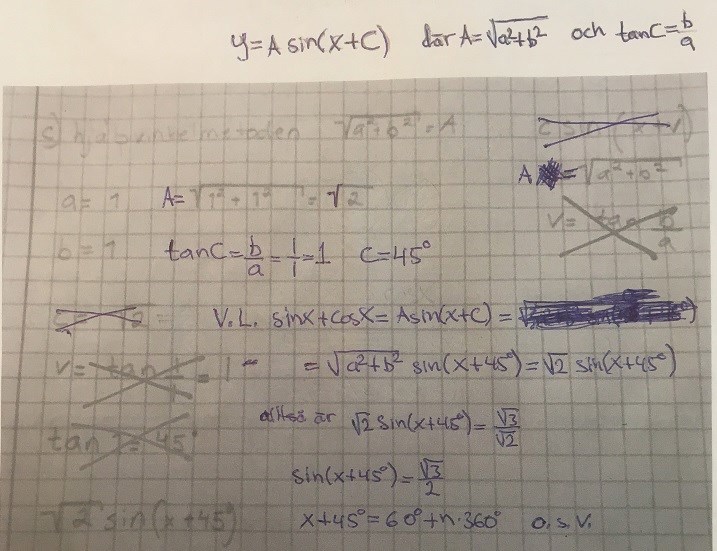 y=A sin(x+C) där A=√a²+b² och tanC=b/a
c) hjälpvinkelmetoden √a²+b² = A
A = √a²+b²
a= 1 A= √1²+1² = √2
v= tan b/a
b=1 tanC= b/a = 1/1 = 1 C=45°
V.L. sinx+cosx= Asin(x+C) =
v= tan 1/1 = 1 = √a²+b² sin(x+45°)=√2 sin(x+45°)
alltså är √2 sin(x+45°)= √3/√2
tan 1 = 45°
sin(x+45°)= √3/2
√2 sin(x+45°) x+45°=60°+n·360° o.s.v.